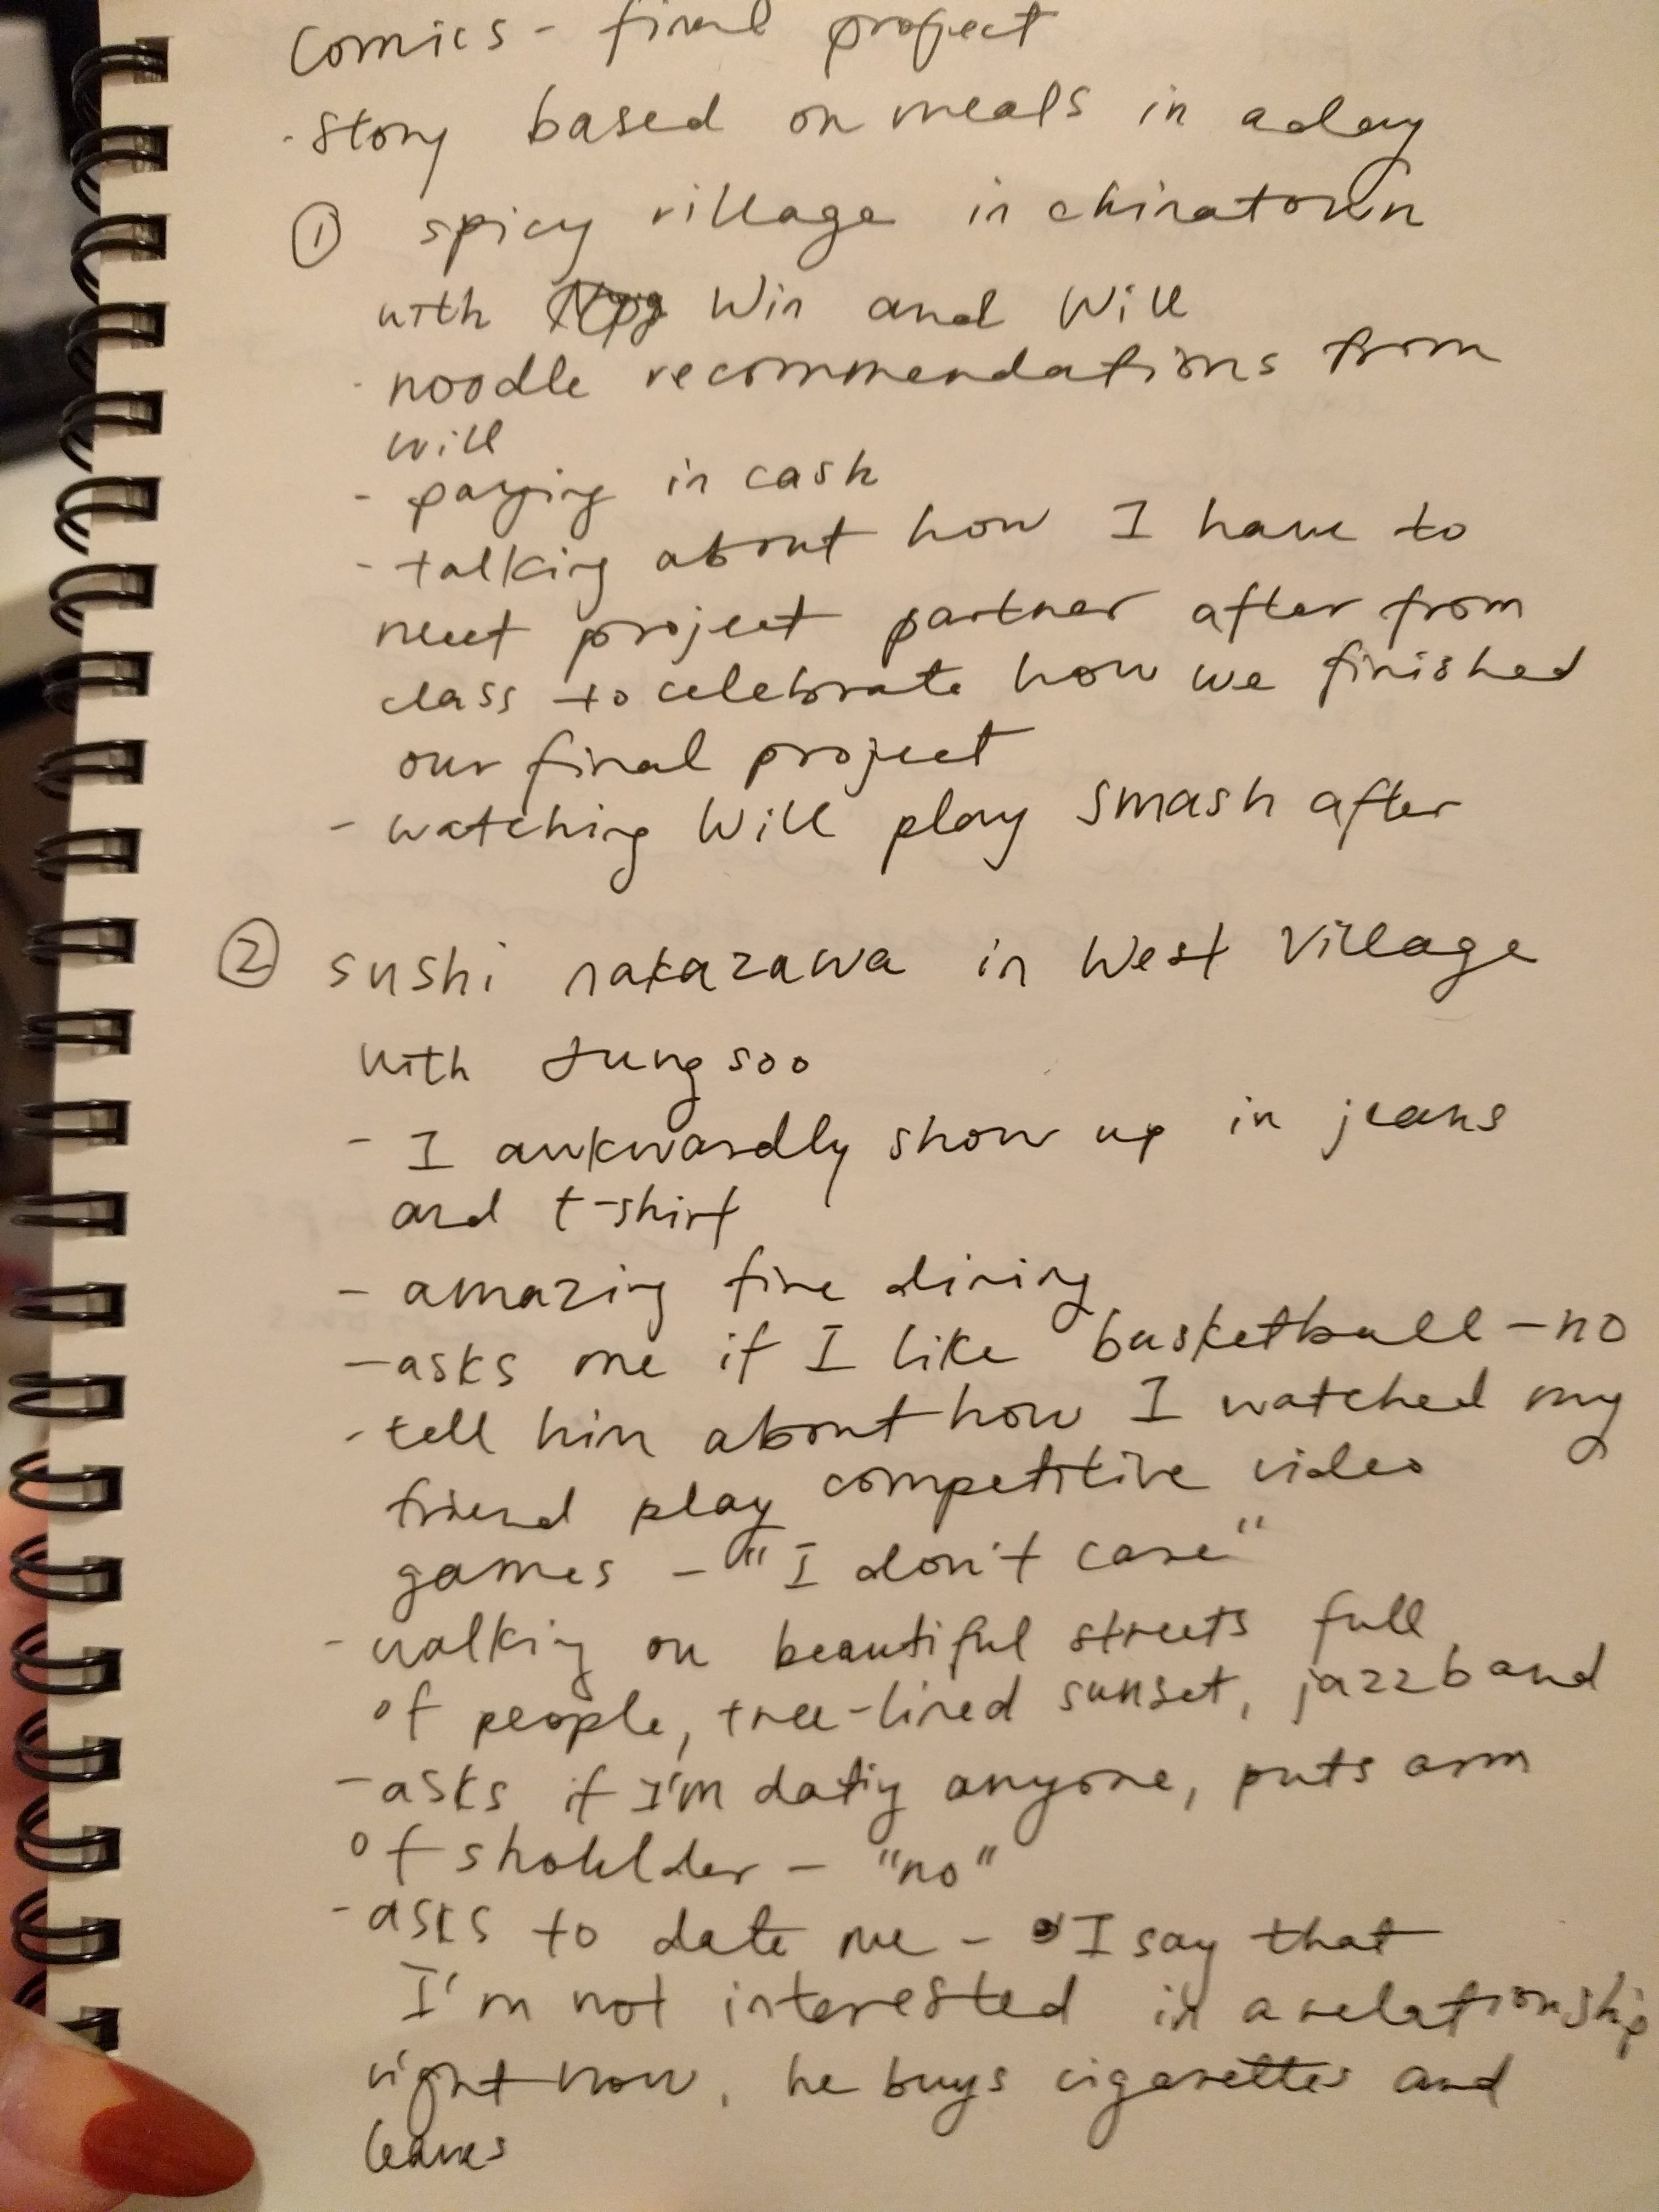 Comics - final project
- story based on meals in a day
① spicy village in chinatown
with Win and Will
- noodle recommendations from
will
- paying in cash
- talking about how I have to
meet project partner after from
class to celebrate how we finished
our final project
- watching Will play Smash after
② sushi nakazawa in West Village
with Jungsoo
- I awkwardly show up in jeans
and t-shirt
- amazing fine dining
- asks me if I like basketball - no
- tell him about how I watched my
friend play competitive video
games - "I don't care"
- walking on beautiful streets full
of people, tree-lined sunset, jazz band
- asks if I'm datig anyone, puts arm
of sholder - "no"
- asks to date me - I say that
I'm not interested in a relationship
right now. he buys cigarettes and
leaves